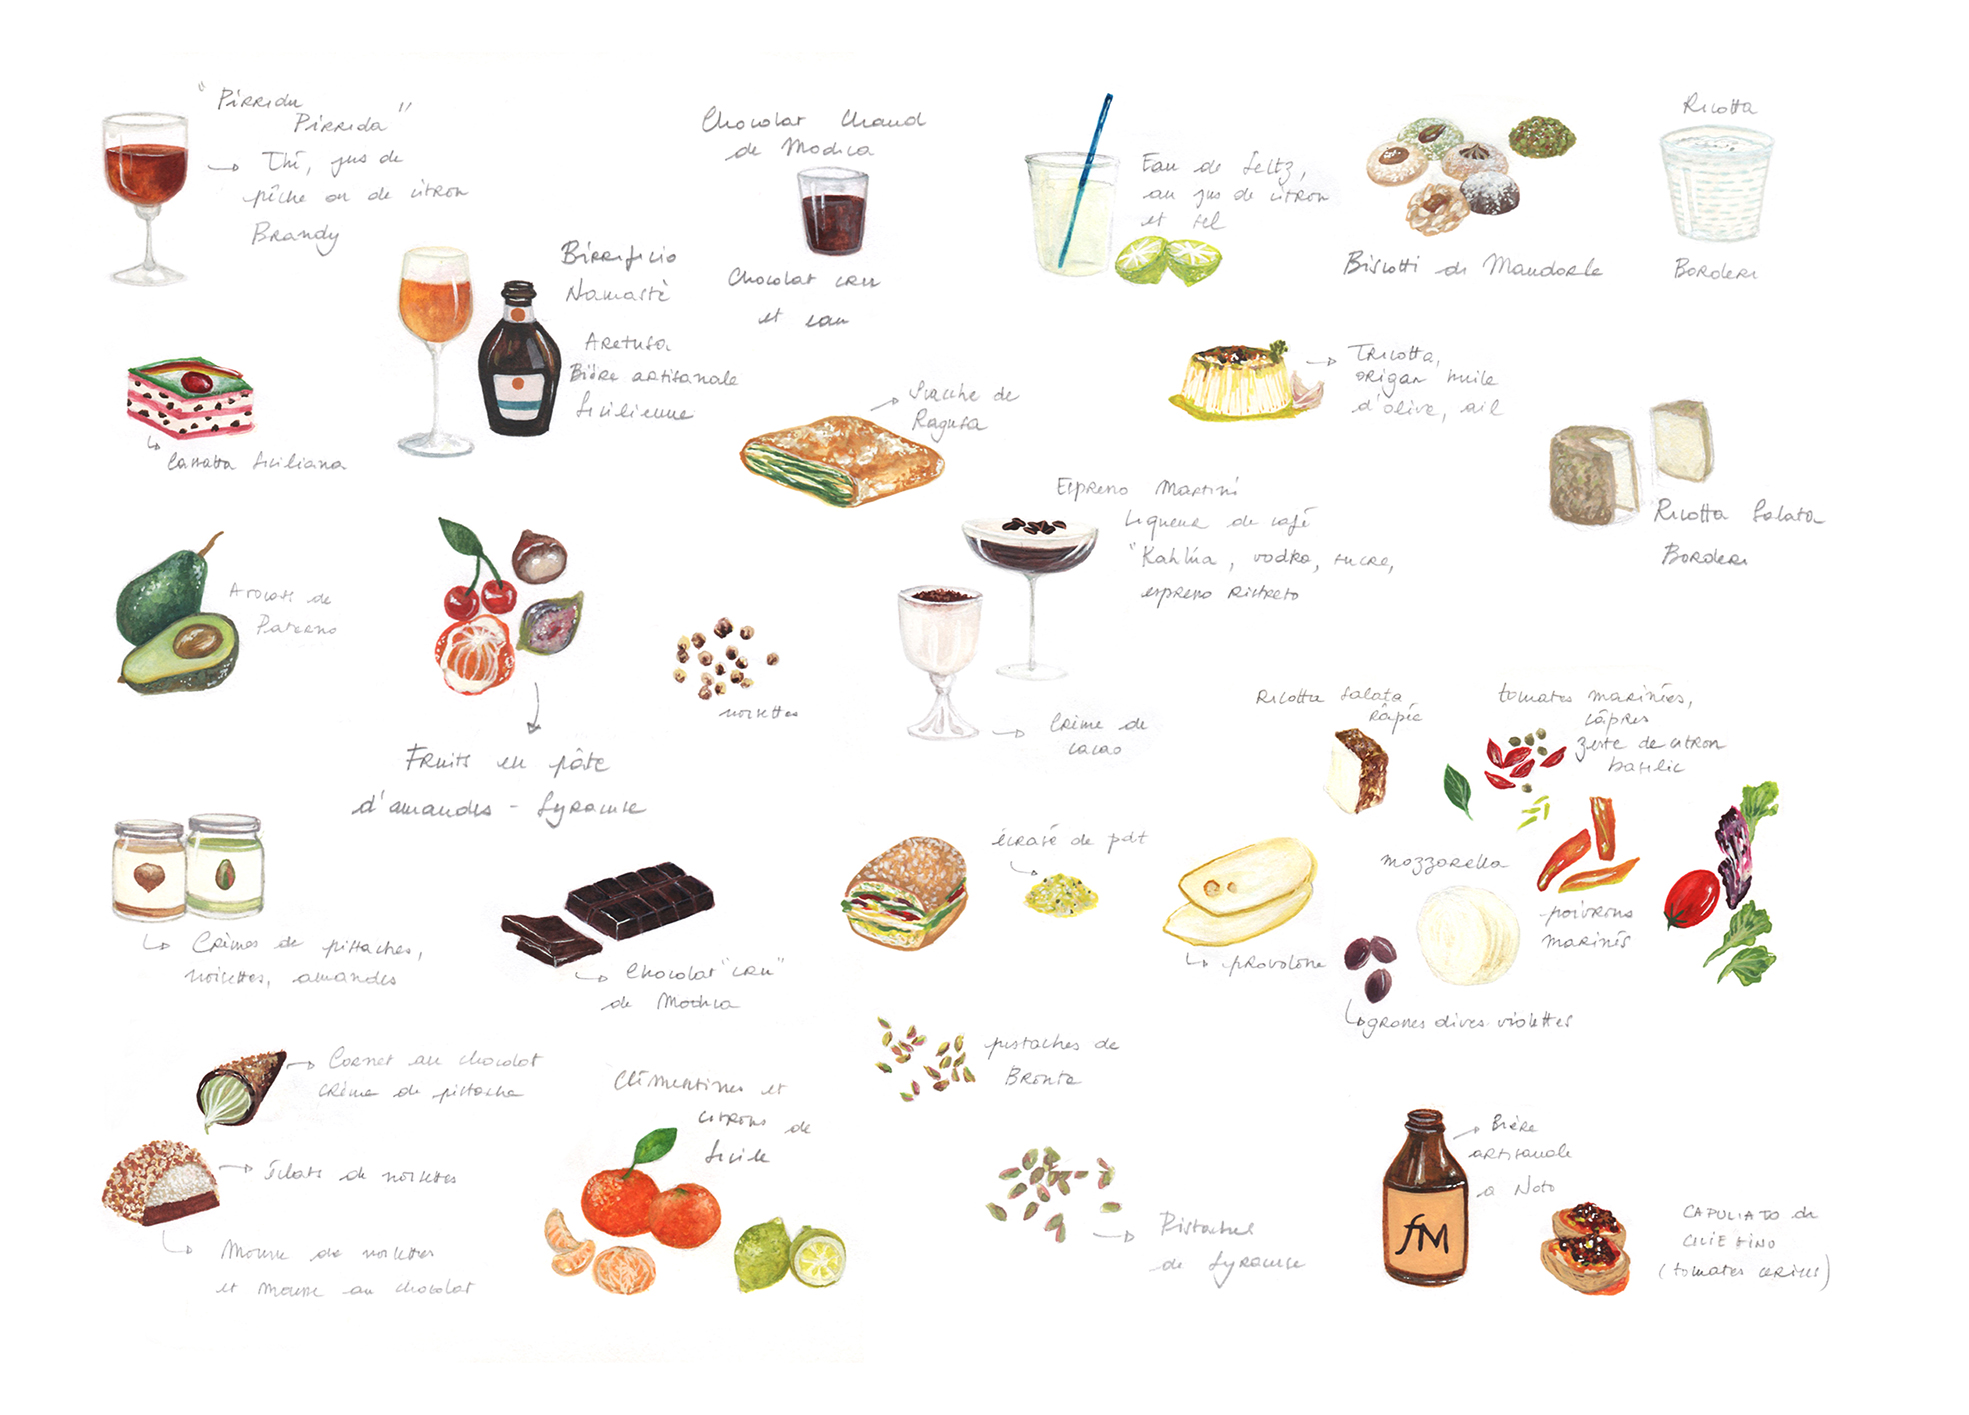 "Pirridu
Pirrida"
Thé, jus de
pêche ou de citron
Brandy
Chocolat Chaud
de Modica
Chocolat cru
et eau
Eau de Seltz,
au jus de citron
et sel
Biscotti di Mandorle
Ricotta
Borderi
Birrificio
Namastè
Aretusa
Bière artisanale
Sicilienne
Cassata Siciliana
Scacche de
Ragusa
Tricotta,
origan huile
d'olive, ail
Ricotta Salata
Borderi
Espresso Martini
Liqueur de café
"Kahlúa, vodka, sucre,
espresso Ristreto
Crème de
cacao
Avocats de
Paterno
Fruits en pâte
d'amandes - Syracuse
noisettes
Ricotta Salata
râpée
tomates marinées,
câpres
zeste de citron
basilic
mozzarella
poivrons
marinés
provolone
écrasé de pdt
Crèmes de pistaches,
noisettes, amandes
Chocolat "cru"
de Modica
grones dives violettes
Cornet au chocolat
crème de pistache
Éclats de noisettes
Mousse de noisettes
et mousse au chocolat
Clémentines et
citrons de
Sicile
pistaches de
Bronte
Pistaches
de Syracuse
Bière
artisanale
a Noto
fM
CAPULIATO di
CILIEGINO
(tomates cerises)